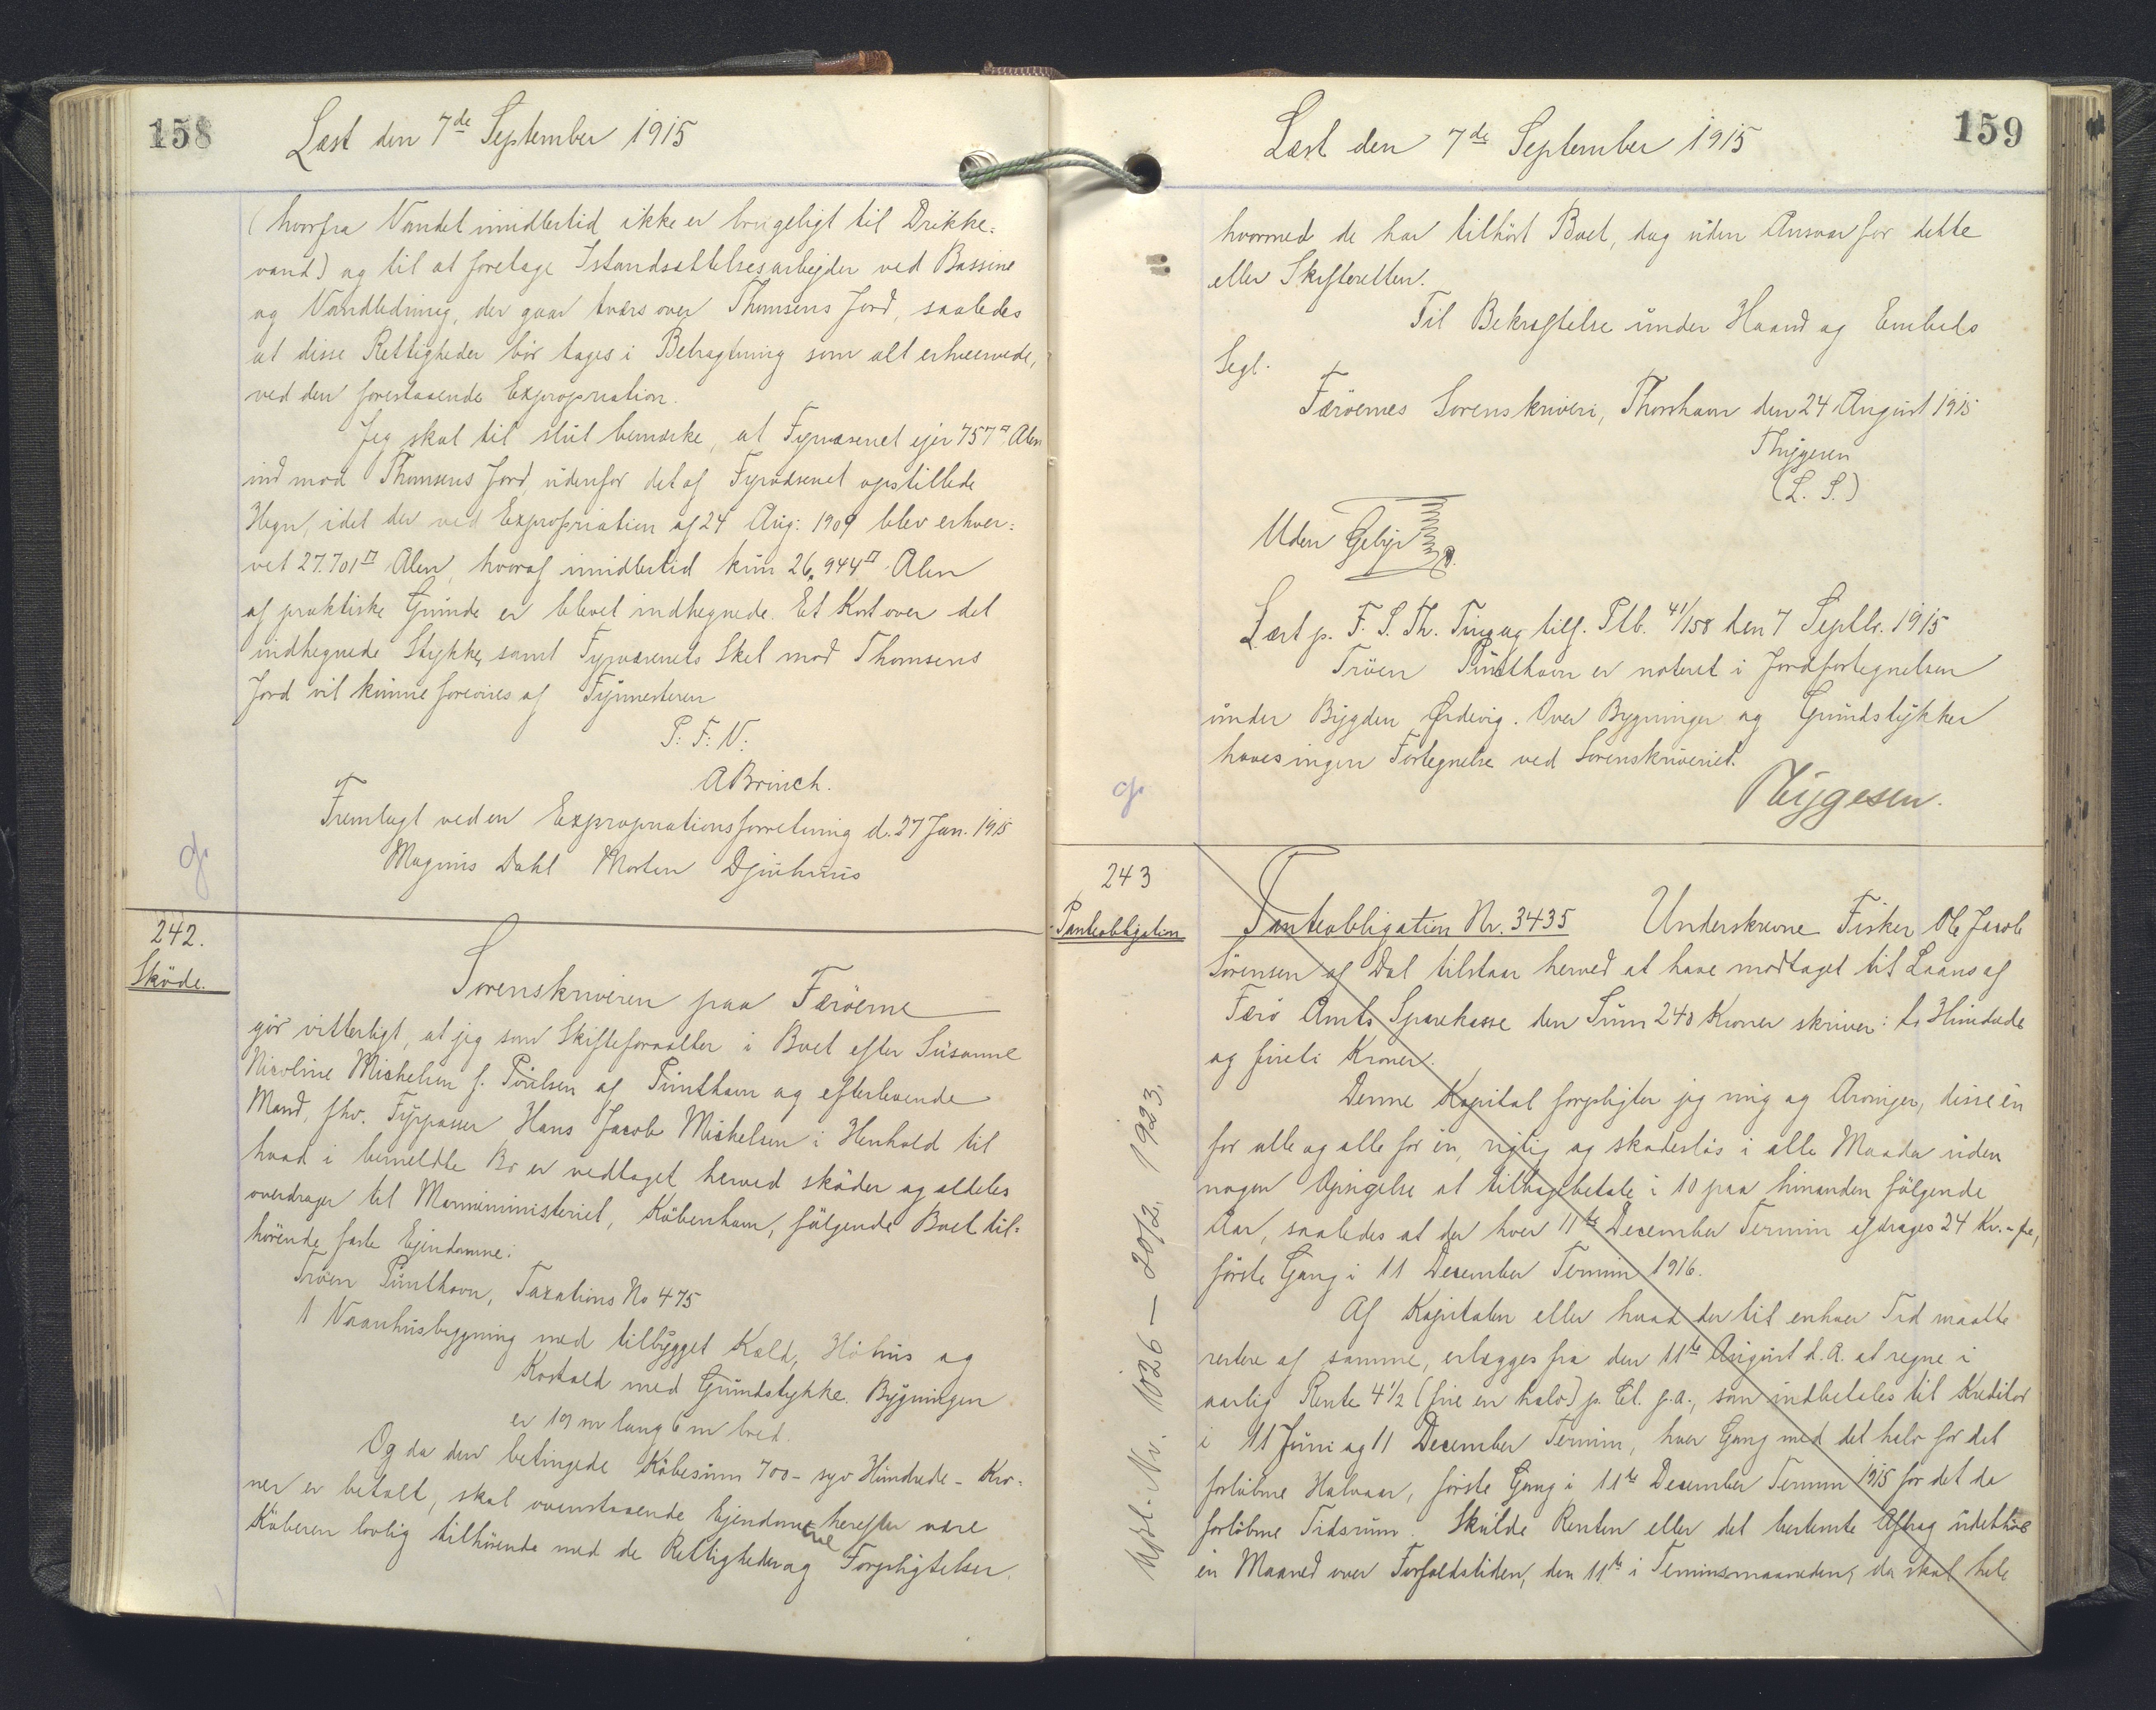 158
Læst den 7de September 1915
(hvorfra Vandet imidlertid ikke er brugeligt til Drikke=
vand) og til at foretage Istandsættelsesarbejder ved Bassine
og Vandledning, der gaar tværs over Thomsens Jord, saaledes
at disse Rettigheder bör tages i Betragtning som alt erhvervede,
ved den forestaaende Expropriation.
Jeg skal til slut bemærke, at Fyrvæsenet ejer 757 □ Alen
ind mod Thomsens Jord, udenfor det af Fyrvæsenet opstillede
Hegn, idet der ved Expropriation af 24 Aug: 1909 blev erhver=
vet 27.701 □ Alen, hvoraf imidlertid kun 26.944 □ Alen
af praktiske Grunde er blevet indhegnede. Et Kort over det
indhegnede Stykke, samt Fyrvæsenets Skel mod Thomsens
Jord vil kunne forevises af Fyrmesteren
P: F: V:
A Brinch.
Fremlagt ved en Expropriationsforretning d. 27 Jan. 1915
Magnus Dahl Morten Djurhuus
242.
Sköde.
Sorenskriveren paa Færöerne
gör vitterligt, at jeg som Skifteforvalter i Boet efter Susanne
Nicoline Michelsen f. Poulsen af Punthavn og efterlevende
Mand, fhv. Fyrpasser Hans Jacob Michelsen i Henhold til
hvad i bemeldte Bo er vedtaget herved sköder og aldeles
overdrager til Marineministeriet, Köbenhavn, fölgende Boet til=
hörende faste Ejendomme:
Tröen Punthavn, Taxations No 475
1 Vaanhusbygning med tilbygget Kæld, Höhus og
Kostald med Grundstykke. Bygningen
er 19 m lang 6 m bred.
Og da den betingede Köbesum 700 - syv Hundrede - Kro=
ner er betalt, skal ovenstaaende Ejendomme herefter være
Köberen lovlig tilhörende med de Rettigheder og Forpligtelser.
159
Læst den 7de September 1915
hvormed de har tilhört Boet, dog uden Ansvar for dette
eller Skifteretten.
Til Bekræftelse under Haand og Embeds
Segl.
Færöernes Sorenskriveri, Thorshavn den 24 August 1915
Thygesen
(L. S.)
Uden Gebyr
Læst p. F. S. Th. Ting og tilf. Ptb. 41/158 den 7 Septbr. 1915
Tröen Punthavn er noteret i Jordfortegnelsen
under Bygden Ördevig. Over Bygninger og Grundstykker
haves ingen Fortegnelse ved Sorenskriveriet.
Thygesen.
243
Panteobligation
Panteobligation Nr. 3435 Underskrevne Fisker Ole Jacob
Sörensen af Dal tilstaar herved at have modtaget til Laans af
Færö Amts Sparekasse den Sum 240 Kroner skriver: to Hundrede
og fireti Kroner.
Denne Kapital forpligter jeg mig og Arvinger, disse én
for alle og alle for én, rigtig og skadeslös i alle Maader uden
nogen Opsigelse at tilbagebetale i 10 paa hinanden fölgende
Aar, saaledes at der hver 11te December Termin afdrages 24 Kr.
förste Gang i 11 December Termin 1916.
Af Kapitalen eller hvad der til enhver Tid maatte
restere af samme, erlægges fra den 11te August d. A. at regne i
aarlig Rente 4½ (fire en halv) p. Ct. p. a., som indbetales til Kreditor
i 11 Juni og 11 December Termin, hver Gang med det halve for det
forlöbne Halvaar, förste Gang i 11te December Termin 1915 for det da
forlöbne Tidsrum. Skulde Renten eller det bestemte Afdrag udeblive
én Maaned over Forfaldstiden, den 11te i Terminsmaaneden, da skal hele
Nr. 1026 - 20/2 1923.